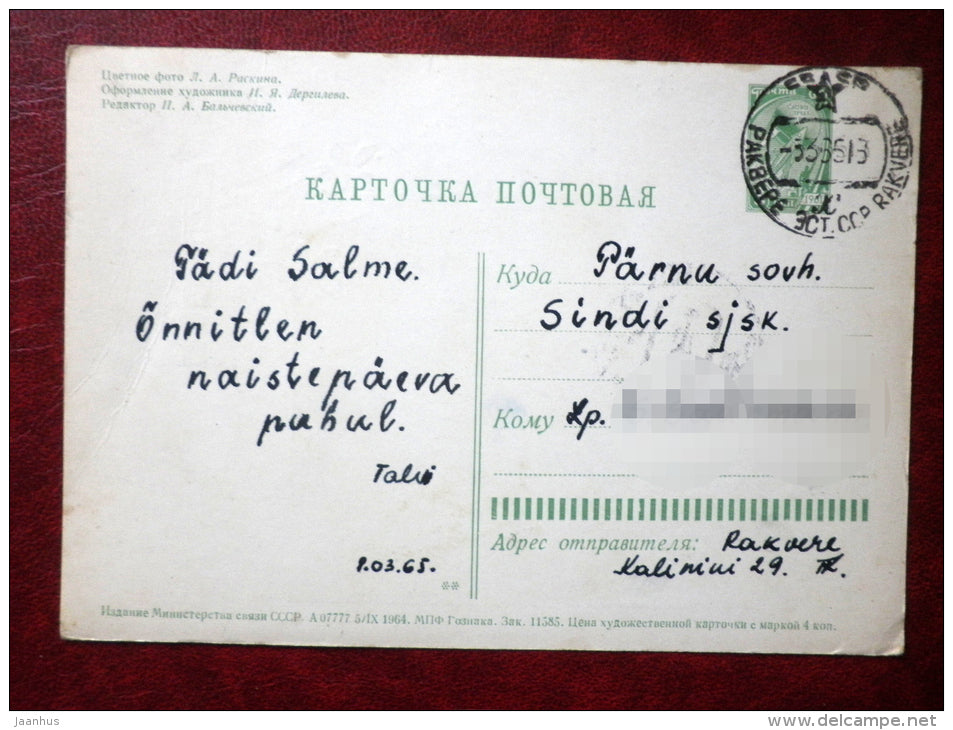 Цветное фото Л. А. Раскина.
Оформление художника И. Я. Дергилева.
Редактор П. А. Бальчевский.
РАКВЕРЕ ЭСТ. ССР RAKVERE
КАРТОЧКА ПОЧТОВАЯ
Tädi Salme.
Õnnitlen
naistepäeva
puhul.
Talvi
8.03.65.
Куда Pärnu sovh.
Sindi sjsk.
Кому Lp.
Адрес отправителя: Rakvere
Kalinini 29.
**
Издание Министерства связи СССР. А 07777 5/IX 1964. МПФ Гознака. Зак. 11585. Цена художественной карточки с маркой 4 коп.
jaanhus
www.delcampe.net